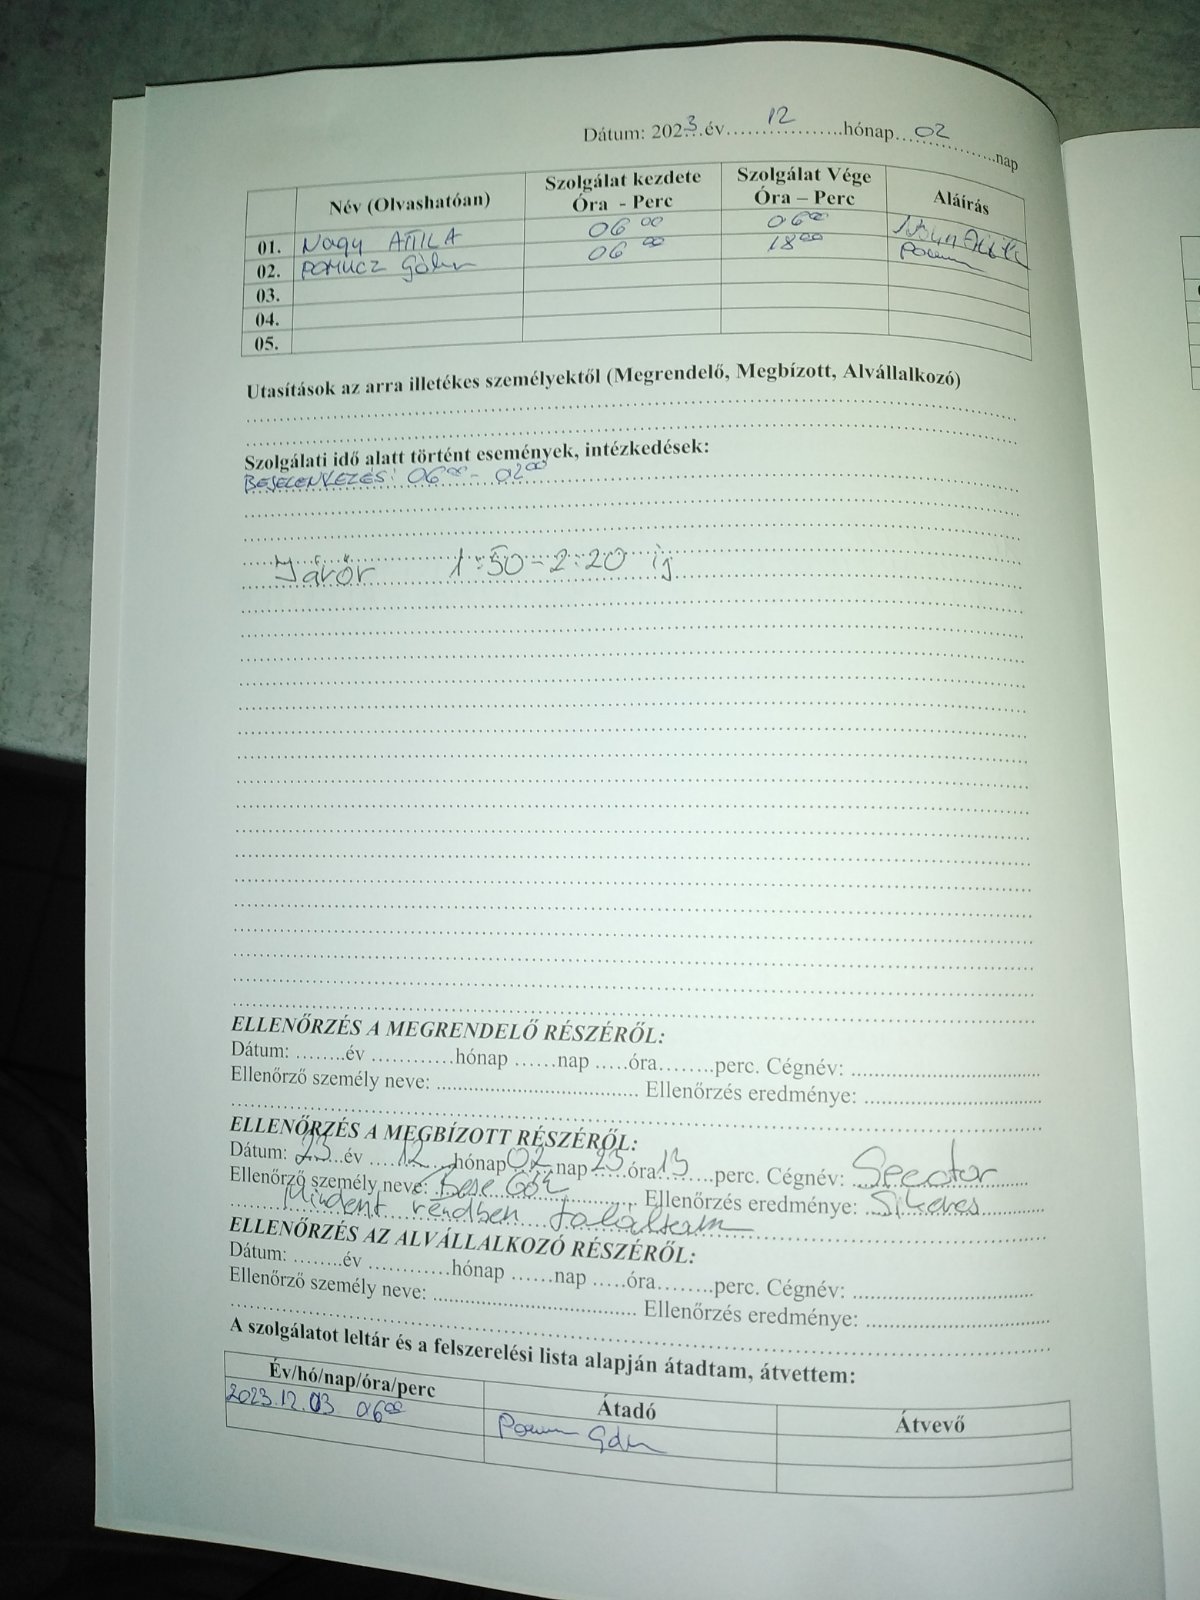 Dátum: 2023.év 12 hónap 02 nap
Név (Olvashatóan) Szolgálat kezdete Óra - Perc Szolgálat Vége Óra – Perc Aláírás
01. Nagy ATTILA 06 00 06 00
02. POMUCZ Gábor 06 00 18 00
03.
04.
05.
Utasítások az arra illetékes személyektől (Megrendelő, Megbízott, Alvállalkozó)
Szolgálati idő alatt történt események, intézkedések:
BEJELENKEZÉS: 06 00 - 02 00
Járőr 1:50-2:20 ig
ELLENŐRZÉS A MEGRENDELŐ RÉSZÉRŐL:
Dátum: ........év ............hónap ......nap .....óra........perc. Cégnév: ................................
Ellenőrző személy neve: .................................. Ellenőrzés eredménye: ..............................
ELLENŐRZÉS A MEGBÍZOTT RÉSZÉRŐL:
Dátum: 23 év 12 hónap 02 nap 23 óra 13 perc. Cégnév: Seector
Ellenőrző személy neve: Bese Ellenőrzés eredménye: Sikeres
Mindent rendben találtam
ELLENŐRZÉS AZ ALVÁLLALKOZÓ RÉSZÉRŐL:
Dátum: ........év ............hónap ......nap .....óra........perc. Cégnév: ..............................
Ellenőrző személy neve: .................................. Ellenőrzés eredménye: ..............................
A szolgálatot leltár és a felszerelési lista alapján átadtam, átvettem:
Év/hó/nap/óra/perc Átadó Átvevő
2023.12.03 06 00